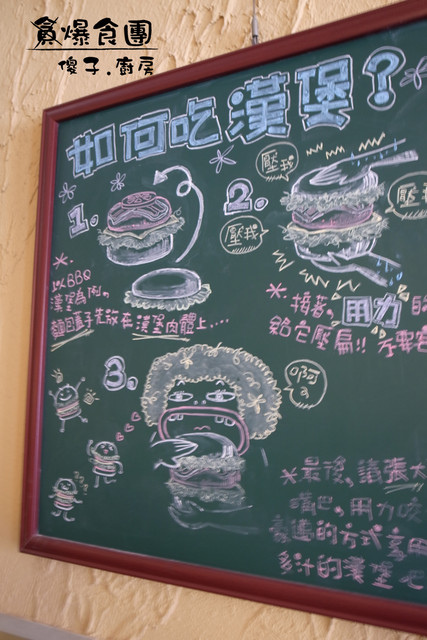 貪爆食團
傻子.廚房
如何吃漢堡?
1.
2.
壓我
壓我
壓
*.
以BBQ
漢堡為例。
麵包蓋子先放在漢堡肉體上....
*接著,用力的
給它壓扁!!不要客
3.
啊
*最後,請張大
嘴巴,用力咬
的方式享用
多汁的漢堡吧